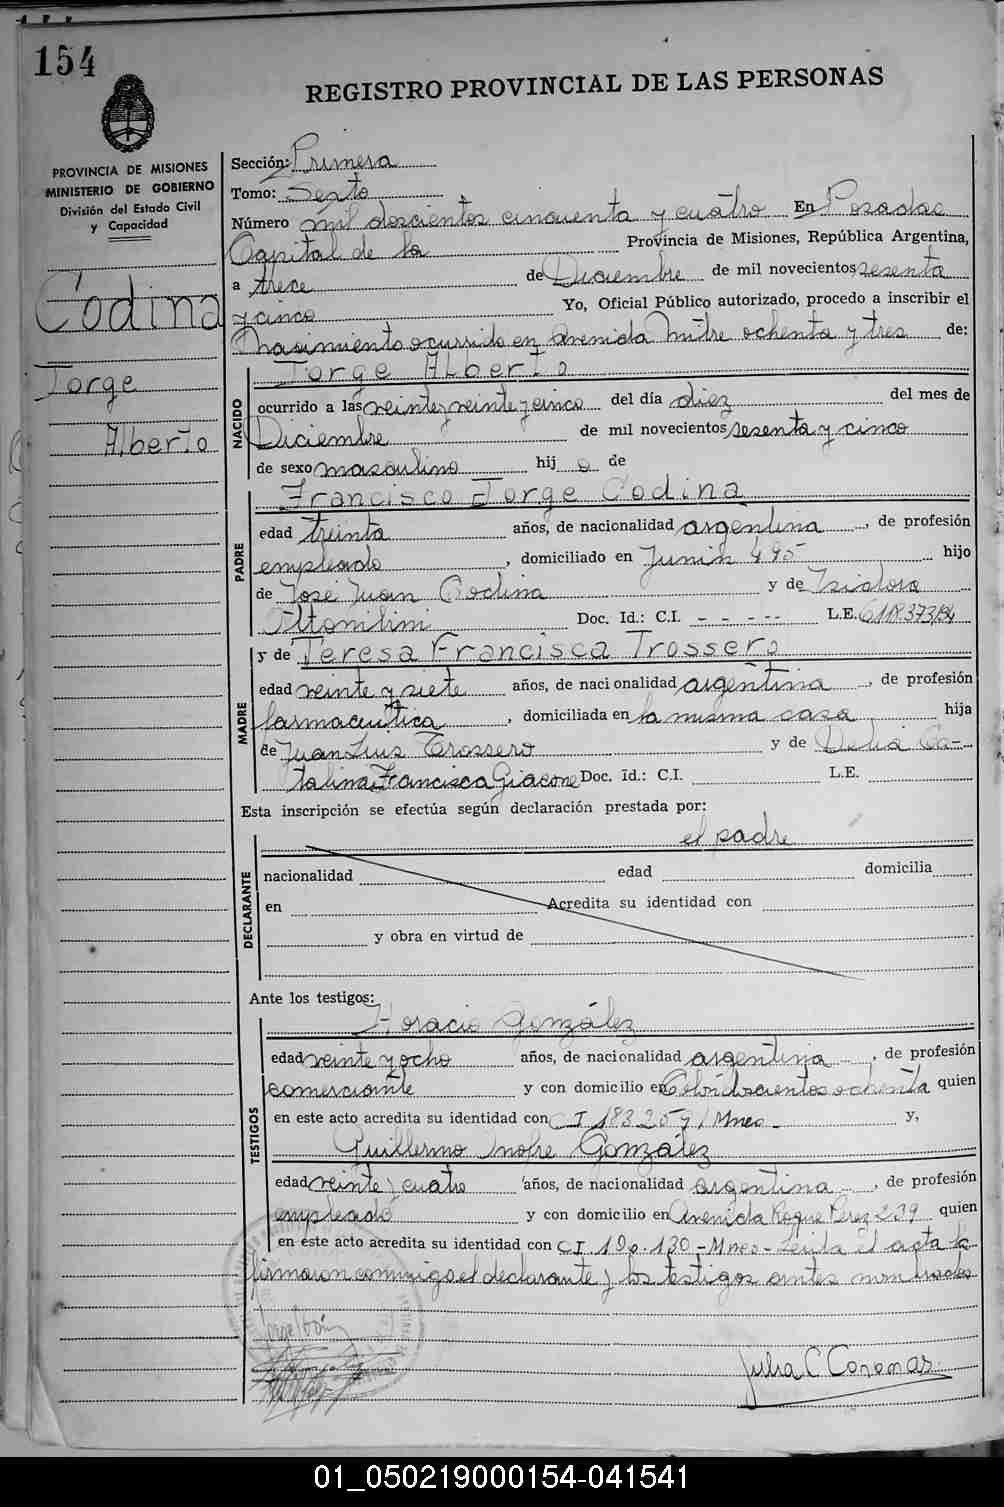 154
REGISTRO PROVINCIAL DE LAS PERSONAS
PROVINCIA DE MISIONES
MINISTERIO DE GOBIERNO
División del Estado Civil
y Capacidad
Codina
Jorge
Alberto
Sección: Primera
Tomo: Sexto
Número mil doscientos cincuenta y cuatro En Posadas
Capital de la Provincia de Misiones, República Argentina,
a trece de Diciembre de mil novecientos sesenta
y cinco Yo, Oficial Público autorizado, procedo a inscribir el
nacimiento ocurrido en Avenida Mitre ochenta y tres de:
NACIDO
Jorge Alberto
ocurrido a las veinte y veinte y cinco del día diez del mes de
Diciembre de mil novecientos sesenta y cinco
de sexo masculino hij o de
PADRE
Francisco Jorge Codina
edad treinta años, de nacionalidad argentina, de profesión
empleado, domiciliado en Junin 495 hijo
de José Juan Codina y de Isidora
Doc. Id.: C.I. - - - -- L.E.
MADRE
y de Teresa Francisca Trossero
edad veinte y siete años, de nacionalidad argentina, de profesión
farmaceutica, domiciliada en la misma casa hija
de Juan Luis Trossero y de Delia Ca-
talina Francisca Giacone Doc. Id.: C.I. L.E.
Esta inscripción se efectúa según declaración prestada por:
el padre
DECLARANTE
nacionalidad edad domicilia
en Acredita su identidad con
y obra en virtud de
Ante los testigos:
TESTIGOS
Horacio González
edad veinte y ocho años, de nacionalidad argentina, de profesión
comerciante y con domicilio en Colón doscientos ochenta quien
en este acto acredita su identidad con CI 183259/Mnes- y,
Guillermo Onofre González
edad veinte y cuatro años, de nacionalidad argentina, de profesión
empleado y con domicilio en Avenida Roque Perez 239 quien
en este acto acredita su identidad con CI 190.130-Mnes- Leida el acta la
firmaron conmigo el declarante y los testigos antes nombrados
Julia C Coronas
01_050219000154-041541